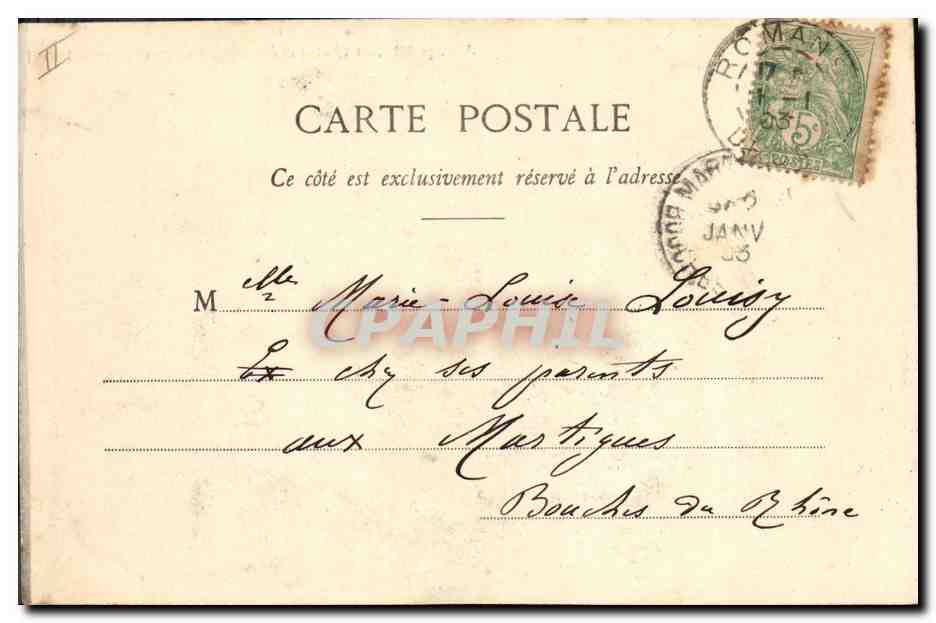 II
ROMANS
17
1 - 1
03
5c
POSTES
CARTE POSTALE
Ce côté est exclusivement réservé à l'adresse
JANV
03
Mlle Marie-Louise Louisy
CPAPHIL
chez ses parents
aux Martigues
Bouches du Rhône